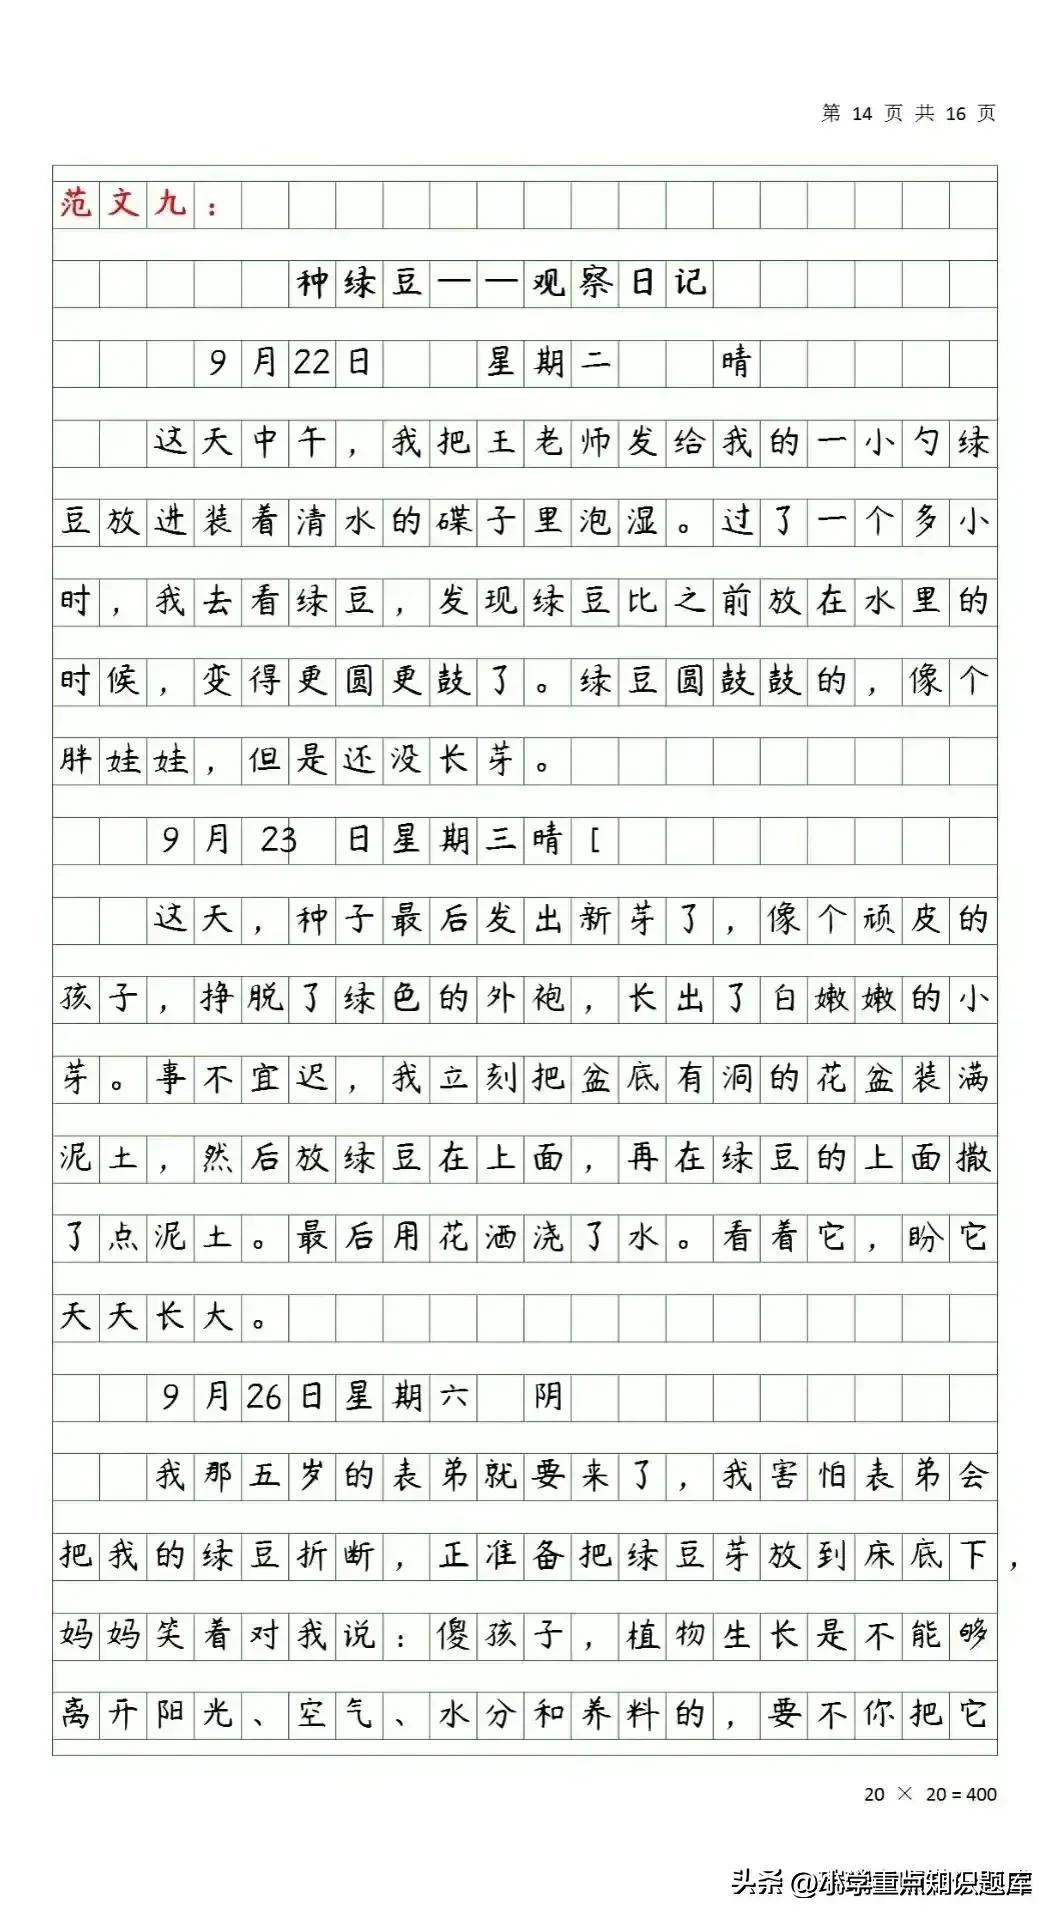 第 14 页 共 16 页
范文九：
种绿豆——观察日记
9月22日 星期二 晴
这天中午，我把王老师发给我的一小勺绿
豆放进装着清水的碟子里泡湿。过了一个多小
时，我去看绿豆，发现绿豆比之前放在水里的
时候，变得更圆更鼓了。绿豆圆鼓鼓的，像个
胖娃娃，但是还没长芽。
9月 23 日星期三晴[
这天，种子最后发出新芽了，像个顽皮的
孩子，挣脱了绿色的外袍，长出了白嫩嫩的小
芽。事不宜迟，我立刻把盆底有洞的花盆装满
泥土，然后放绿豆在上面，再在绿豆的上面撒
了点泥土。最后用花洒浇了水。看着它，盼它
天天长大。
9月26日星期六 阴
我那五岁的表弟就要来了，我害怕表弟会
把我的绿豆折断，正准备把绿豆芽放到床底下，
妈妈笑着对我说：傻孩子，植物生长是不能够
离开阳光、空气、水分和养料的，要不你把它
20 × 20 = 400
头条 @小学重点知识题库